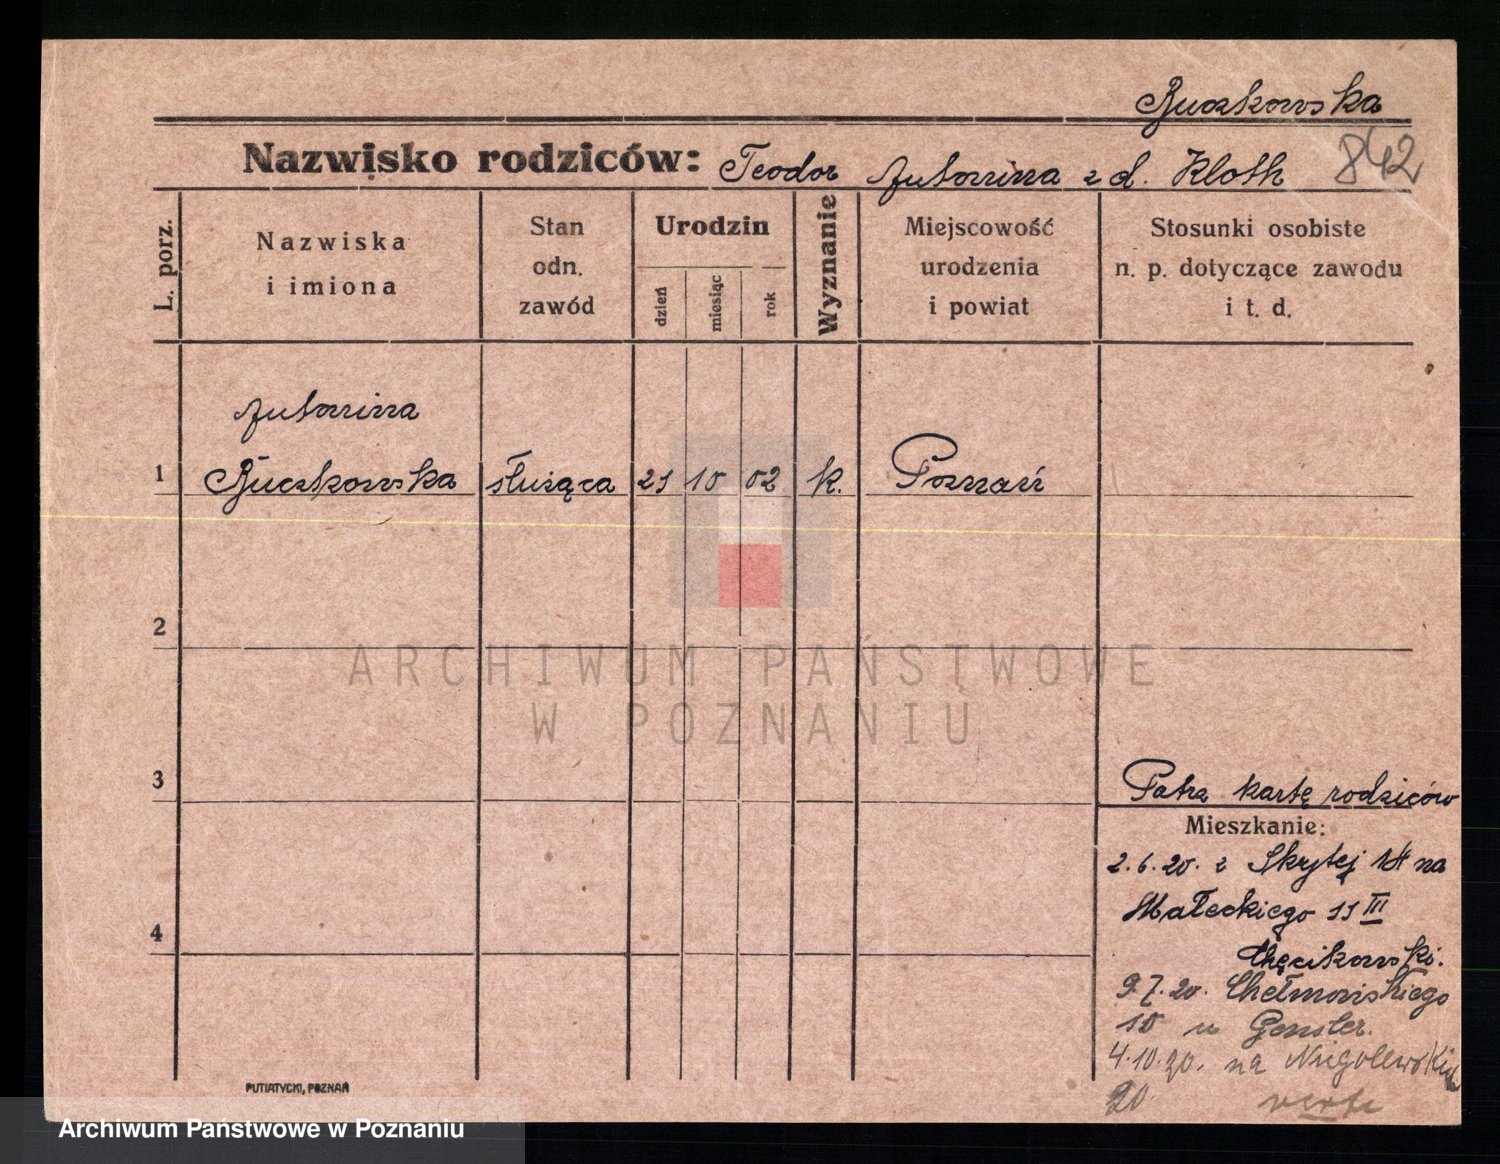 Ruczkowska
Nazwisko rodziców: Teodor Antonina z d. Kloth 842
L. porz.
Nazwiska
i imiona
Stan
odn.
zawód
Urodzin
dzień
miesiąc
rok
Wyznanie
Miejscowość
urodzenia
i powiat
Stosunki osobiste
n. p. dotyczące zawodu
i t. d.
Antonina
1 Ruczkowska służąca 21 10 02 k. Poznań
2
ARCHIWUM PAŃSTWOWE
W POZNANIU
3
Patrz kartę rodziców
Mieszkanie:
2.6.20. z Skrytej 14 na
Małeckiego 11 III
4
Chęcikowski.
9.7.20. Chełmońskiego
10 u Gensler.
4.10.20. na
20 verte
PUTIATYCKI, POZNAŃ
Archiwum Państwowe w Poznaniu